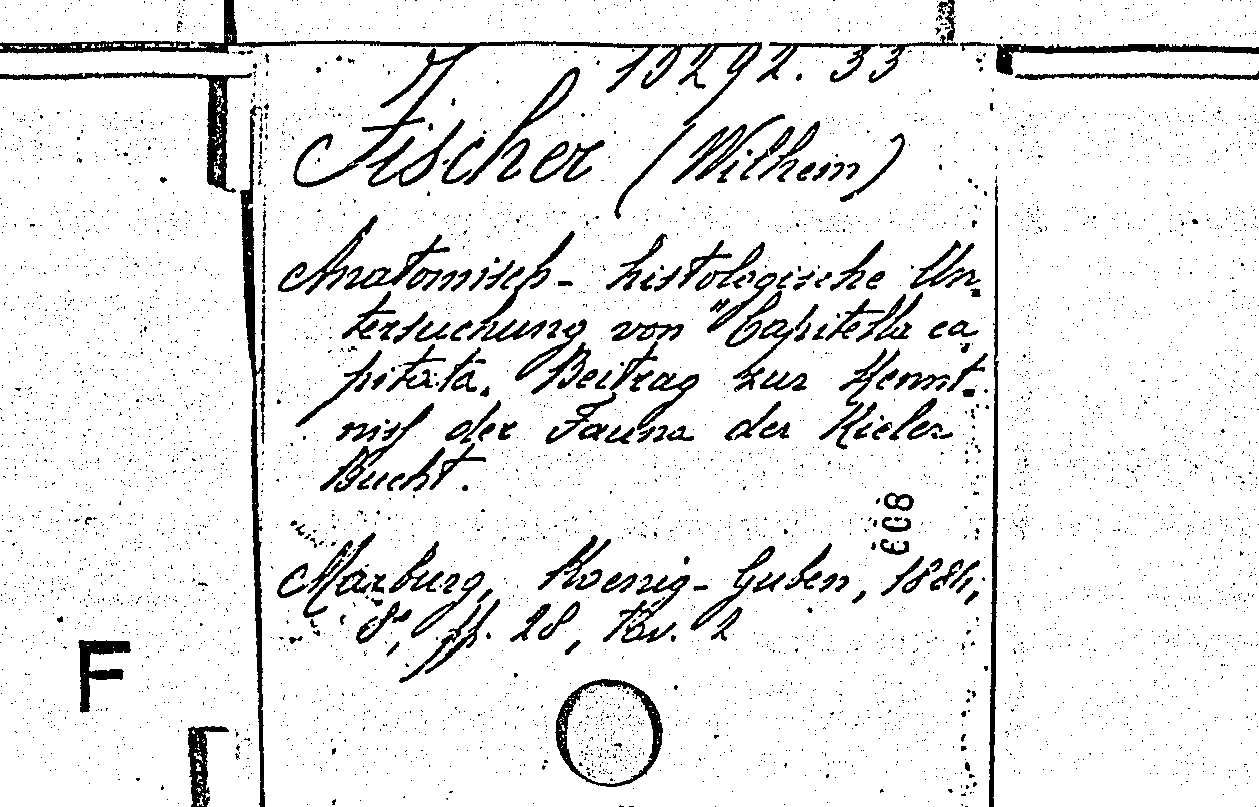 19292.33
Fischer (Wilhelm)
Anatomisch-histologische Un-
tersuchung von "Capitella ca-
pitata. Beitrag zur Kennt-
niss der Fauna der Kieler
Bucht.
Marburg, Koenig-Guben, 1884,
8°, pp. 28, Tav. 2
F